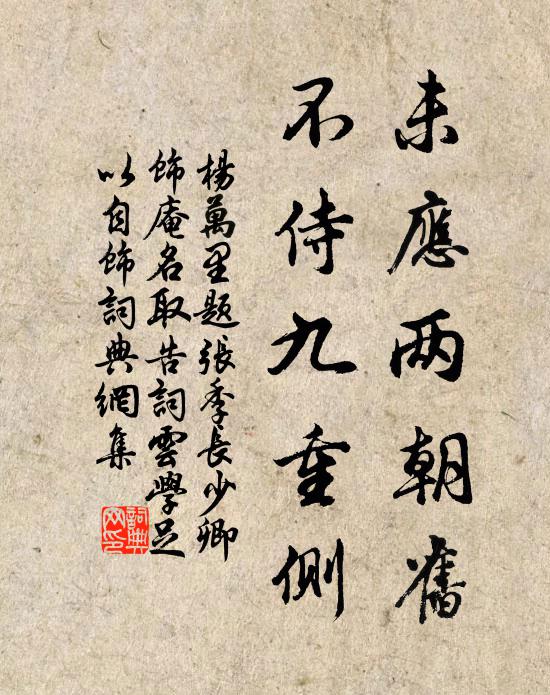 未應两朝舊
不侍九重側
楊萬里題張季長少卿
飾庵名取告詞雲學足
以自飾詞典網集
詞典网印